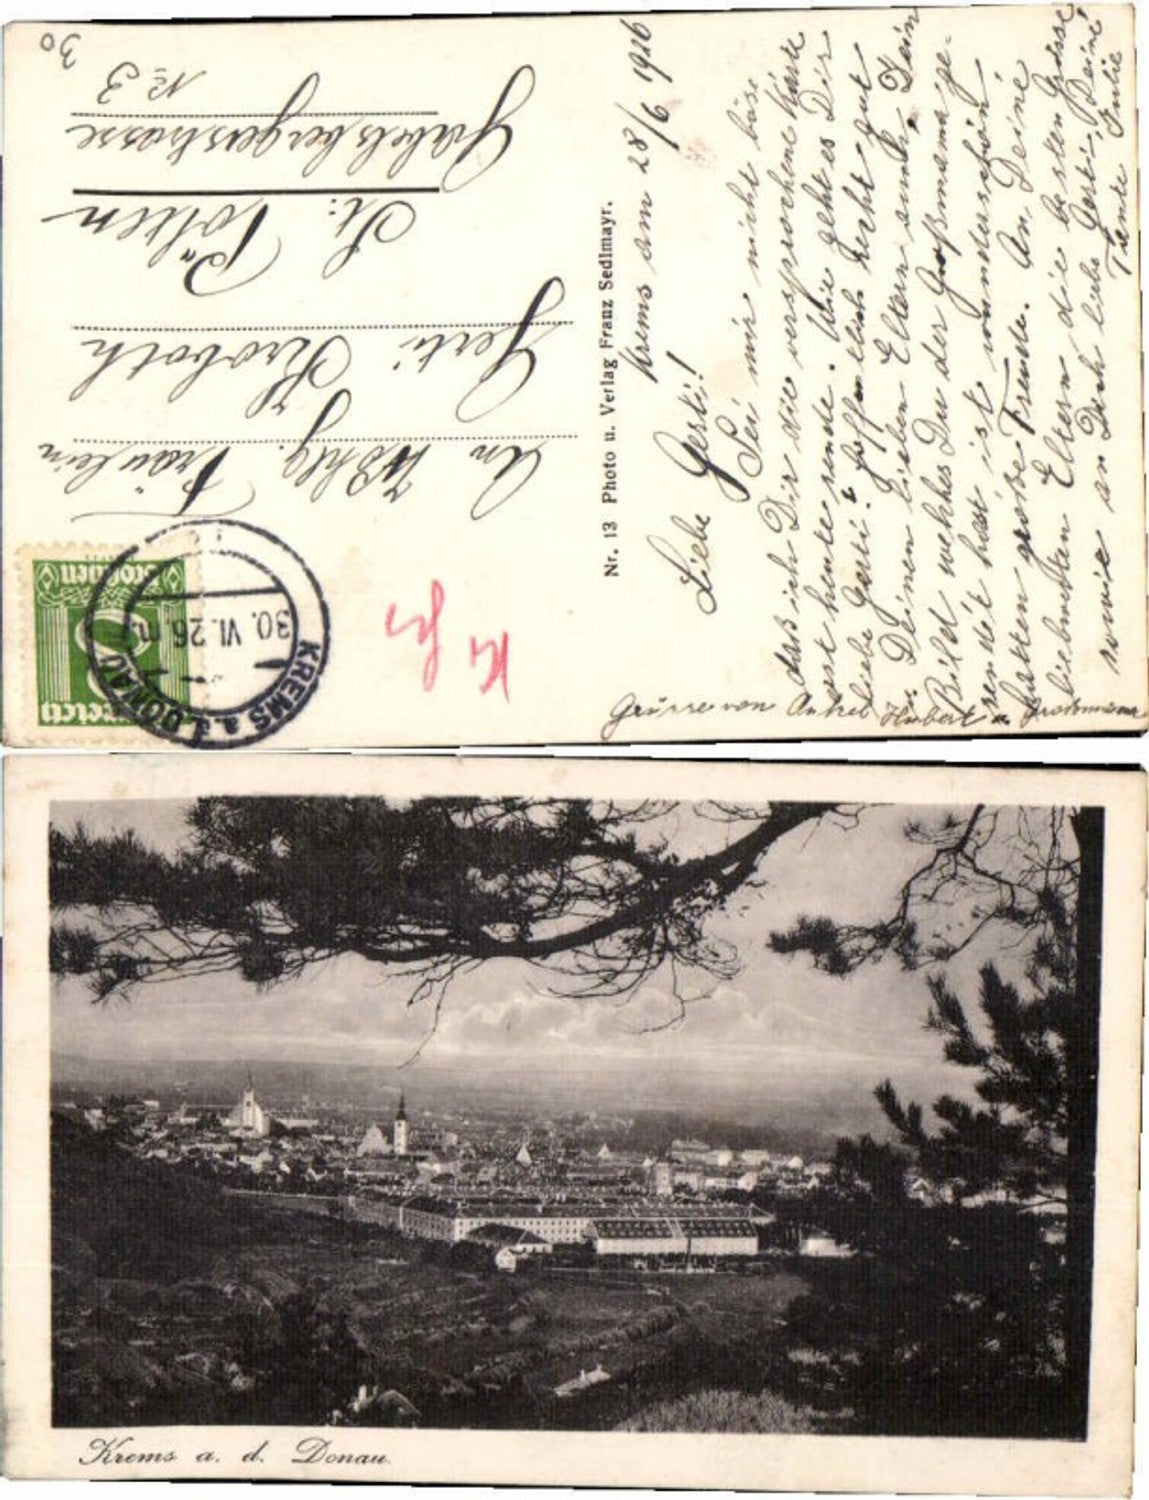 30
An Wohlg.
Fräulein
Gerti
Hroboth
St:
Pölten
Gabelsbergerstrasse
Nr 3
Groschen
8
KREMS a. d. DONAU
30. VI. 26.
Nr. 13 Photo u. Verlag Franz Sedlmayr.
Krems am 28/6 1926
Liebe Gerti!
Sei mir nicht böse
daß ich Dir die versprochene Karte
erst heute sende. Wie geht es Dir
liebe Gerti? hoffentlich recht gut
u. Deinen lieben Eltern auch, Dein
Bild welches Du der Großmama ge-
sendet hast ist wunderschön
hatten große Freude. An Deine
liebwerten Eltern die besten Grüsse
sowie an Dich liebe Gerti, Deine
Tante Julie
Grüsse von Onkel Hubert u. Grossmama
Krems a. d. Donau.